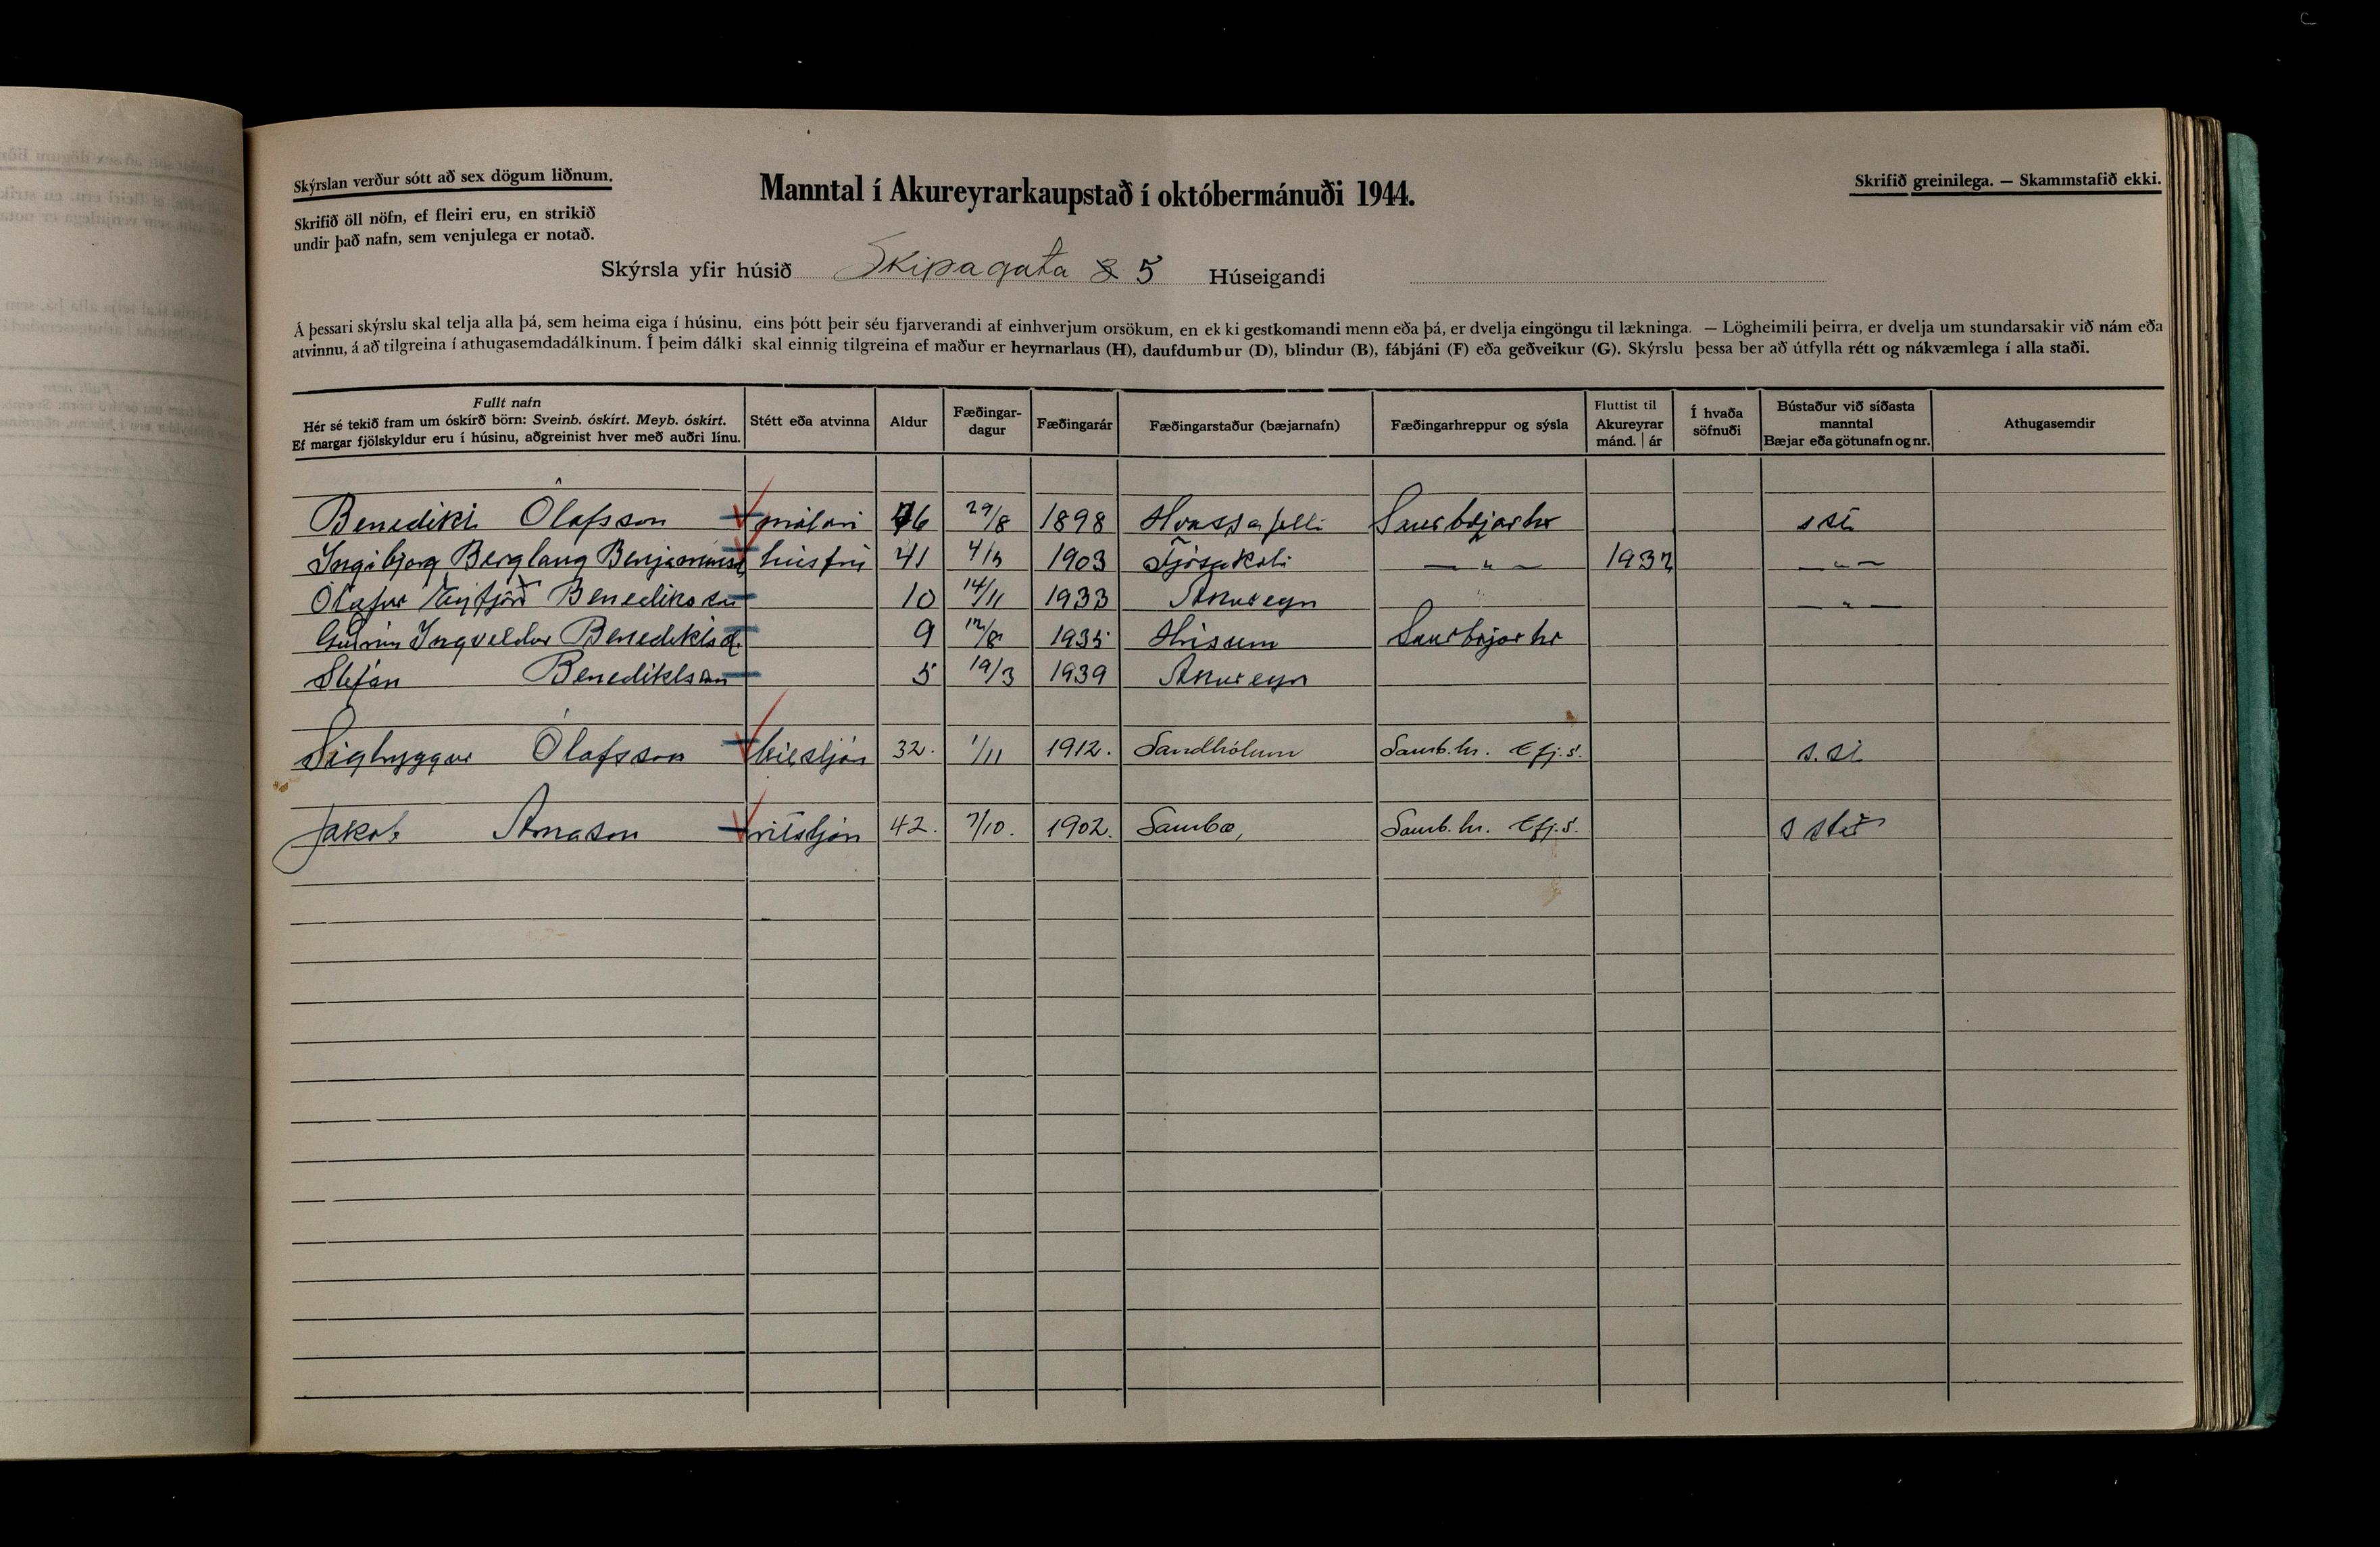 Skýrslan verður sótt að sex dögum liðnum.
Manntal í Akureyrarkaupstað í októbermánuði 1944.
Skrifið greinilega. — Skammstafið ekki.
Skrifið öll nöfn, ef fleiri eru, en strikið
undir það nafn, sem venjulega er notað.
Skýrsla yfir húsið Skipagata 5 Húseigandi
Á þessari skýrslu skal telja alla þá, sem heima eiga í húsinu, eins þótt þeir séu fjarverandi af einhverjum orsökum, en ekki gestkomandi menn eða þá, er dvelja eingöngu til lækninga. — Lögheimili þeirra, er dvelja um stundarsakir við nám eða
atvinnu, á að tilgreina í athugasemdadálkinum. Í þeim dálki skal einnig tilgreina ef maður er heyrnarlaus (H), daufdumbur (D), blindur (B), fábjáni (F) eða geðveikur (G). Skýrslu þessa ber að útfylla rétt og nákvæmlega í alla staði.
Fullt nafn
Hér sé tekið fram um óskírð börn: Sveinb. óskírt. Meyb. óskírt.
Ef margar fjölskyldur eru í húsinu, aðgreinist hver með auðri línu.
Stétt eða atvinna
Aldur
Fæðingar-
dagur
Fæðingarár
Fæðingarstaður (bæjarnafn)
Fæðingarhreppur og sýsla
Fluttist til
Akureyrar
mánd. | ár
Í hvaða
söfnuði
Bústaður við síðasta
manntal
Bæjar eða götunafn og nr.
Athugasemdir
Benedikt Ólafsson málari 46 29/8 1898 Hvassafelli Saurbæjarhr
Ingibjörg Berglaug Benjamínsd húsfrú 41 1903 — " — — " —
Ólafur Eyfjörð Benediktsson 10 14/11 1933 Akureyri — " —
Guðrún Ingveldur Benediktsd. 9 12/8 1935 Hrísum Saurbæjarhr
Stefán Benediktsson 5 19/3 1939 Akureyri
Sigtryggur Ólafsson bílstjóri 32. 1/11 1912. Sandhólum Saurb.hr. Efj.s. s. st.
Jakob Árnason ritstjóri 42. 7/10. 1902. Saurbæ, Saurb.hr. Efj.s.